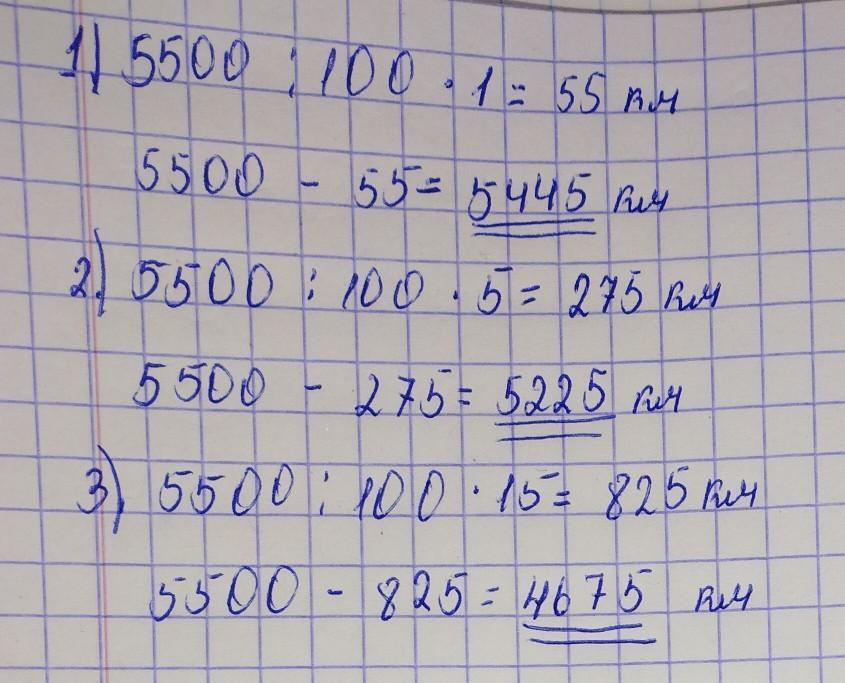 1) 5500 : 100 · 1 = 55 км
5500 - 55 = 5445 км
2) 5500 : 100 · 5 = 275 км
5500 - 275 = 5225 км
3) 5500 : 100 · 15 = 825 км
5500 - 825 = 4675 км